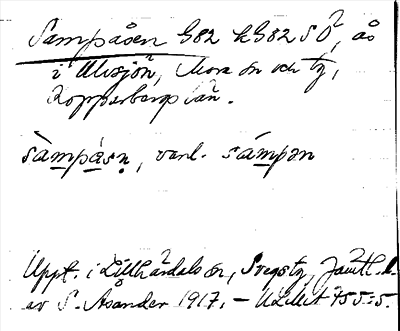 Sampåsen G82 k G82 SO², ås
i Alvsjön, Mora sn och tg,
Kopparbergs län.
sàmpåsn, vanl. sámpən
Uppt. i Lillhärdals sn, Svegs tg, Jämtl. l.
av S. Åsander 1917. – ULMA 755:5.